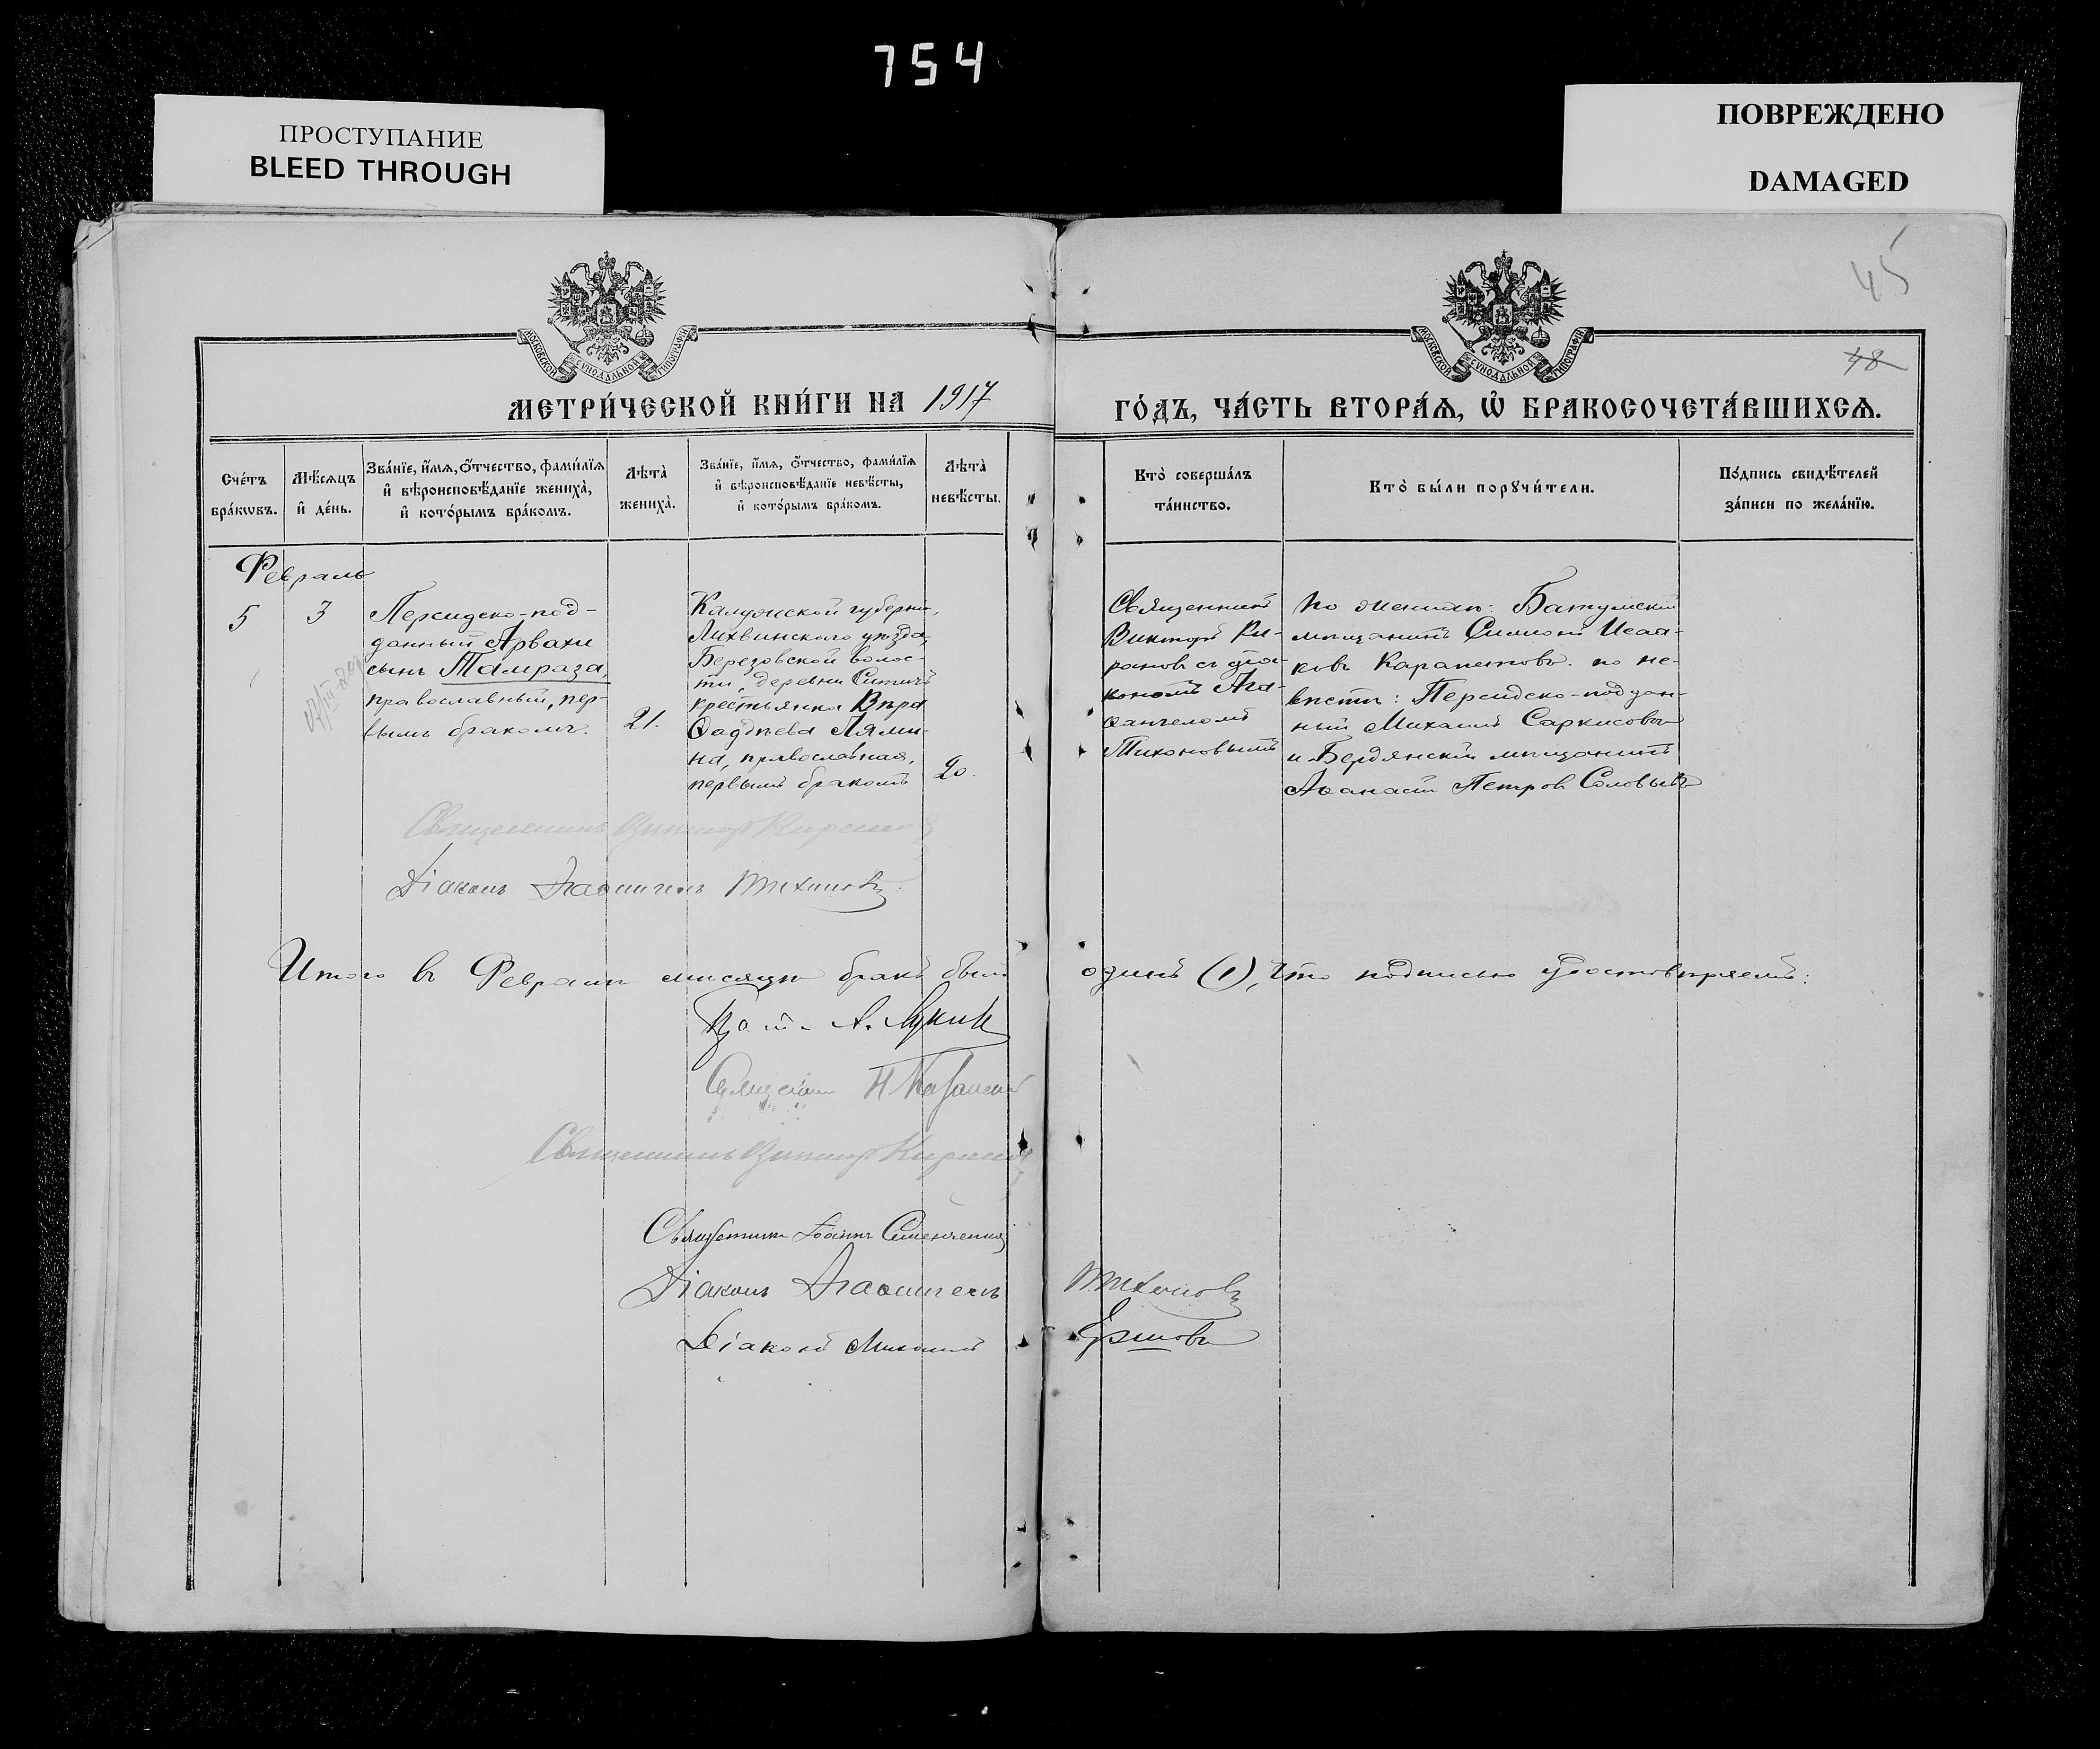 754
ПРОСТУПАНИЕ
BLEED THROUGH
ПОВРЕЖДЕНО
DAMAGED
45
48
МОСКОВСКОЙ СѴНОДАЛЬНОЙ ТИПОГРАФІИ
МОСКОВСКОЙ СѴНОДАЛЬНОЙ ТИПОГРАФІИ
МЕТРИ́ЧЕСКОЙ КНИ́ГИ НА 1917
ГО́ДЪ, ЧА́СТЬ ВТОРА́Ѧ, Ѡ҆ БРАКОСОЧЕТА́ВШИХСѦ.
Сче́тъ
бра́кѡвъ.
Мѣ́сѧцъ
и҆ де́нь.
Зва́нїе, и҆́мѧ, ѻ҆́тчество, фами́лїѧ
и҆ вѣроисповѣ́данїе жениха̀,
и҆ кото́рымъ бра́комъ.
Лѣта̀
жениха̀.
Зва́нїе, и҆́мѧ, ѻ҆́тчество, фами́лїѧ
и҆ вѣроисповѣ́данїе невѣ́сты,
и҆ кото́рымъ бра́комъ.
Лѣта̀
невѣ́сты.
Кто̀ соверша́лъ
та́инство.
Кто̀ бы́ли порꙋчи́тели.
По́дпись свидѣ́телей
за́писи по жела́нїю.
Февраль
5
3
Персидско-под-
данный Арвахи
сынъ Тамраза,
православный, пер-
вымъ бракомъ.
21.
Калужской губерніи,
Лихвинскаго уѣзда,
Березовской волос-
ти, деревни
крестьянка Вѣра
Ѳаддѣева Лями-
на, православная,
первымъ бракомъ
20.
Священникъ
Викторъ Ки-
рановъ съ діа-
кономъ Ага-
ѳангеломъ
Тихоновымъ
по женихѣ: Батумскій
мѣщанинъ Симонъ Исаа-
ковъ Карапетовъ. по не-
вѣстѣ: Персидско-поддан-
ный Михаилъ Саркисовъ
и Бердянскій мѣщанинъ
Аѳанасій Петровъ Соловьевъ
Священникъ Викторъ Кирановъ
Діаконъ Агаѳангелъ Тихоновъ
Итого въ Февралѣ мѣсяцѣ бракъ былъ одинъ (1), что подписью удостовѣряемъ:
Священникъ Викторъ Кирановъ
Священникъ Іоаннъ
Діаконъ Агаѳангелъ Тихоновъ
Діаконъ Михаилъ Ершовъ